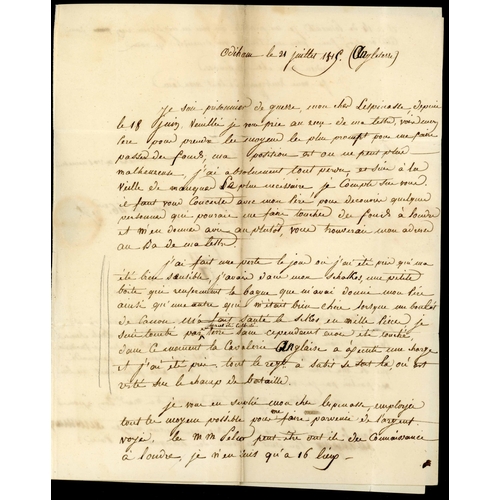 Odiham le 21 juillet 1815. (Angleterre)
je suis prisonnier de guerre, mon cher Lespinasse, depuis
le 18 juin, veuillez je vous prie au reçu de ma lettre, vous
pour prendre les moyens les plus prompt pour me faire
passer des fonds, ma position est on ne peut plus
malheureuse j'ai absolument tout perdu et suis à la
veille de manquer du plus nécessaire je compte sur vous.
il faut vous concerter avec mon père pour découvrir quelque
personne qui pourrait me faire toucher des fonds à Londre
et m'en donner avis au plutot, vous trouverai mon adresse
au bas de ma lettre.
j'ai fait une perte le jour ou j'ai été pris qui m'a
été bien sensible, j'avais dans mon schakos, une petite
boite qui renfermait la bague que m'avai donné mon père
ainsi qu'une autre qui m'était bien chère lorsque un boulet
de canon a fait sauté le schakos en mille pièce je
suis tombé par terre sans cependant avoir été
dans ce moment la Cavalerie Anglaise a exécuté une charge
et j'ai été pris, tout le regt. à
resté sur le champ de bataille.
je vous en supplie mon cher Lespinasse, employez
tout les moyens possible pour me faire parvenir de l'argent
voyez, les mm peut être ont il des connaissance
à Londre, je n'en suis qu'a 16 lieux